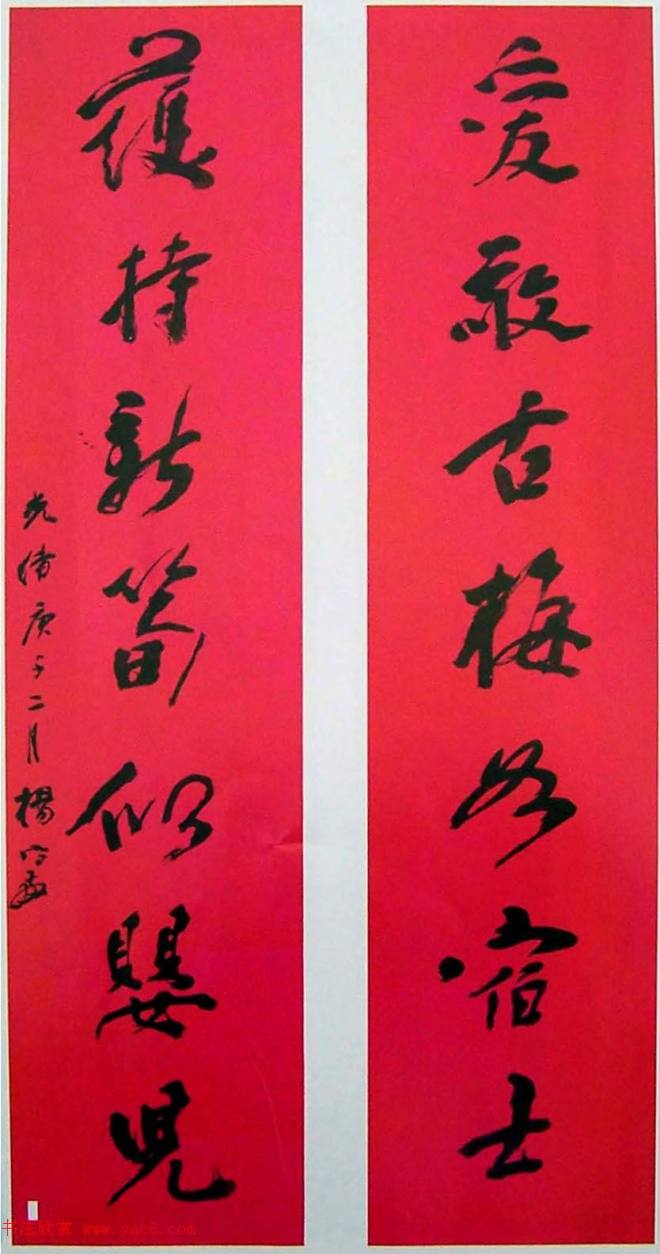 愛敬古梅如宿士
護持新筍似嬰兒
光緒庚子二月 楊守敬
书法欣赏 www.yac8.com